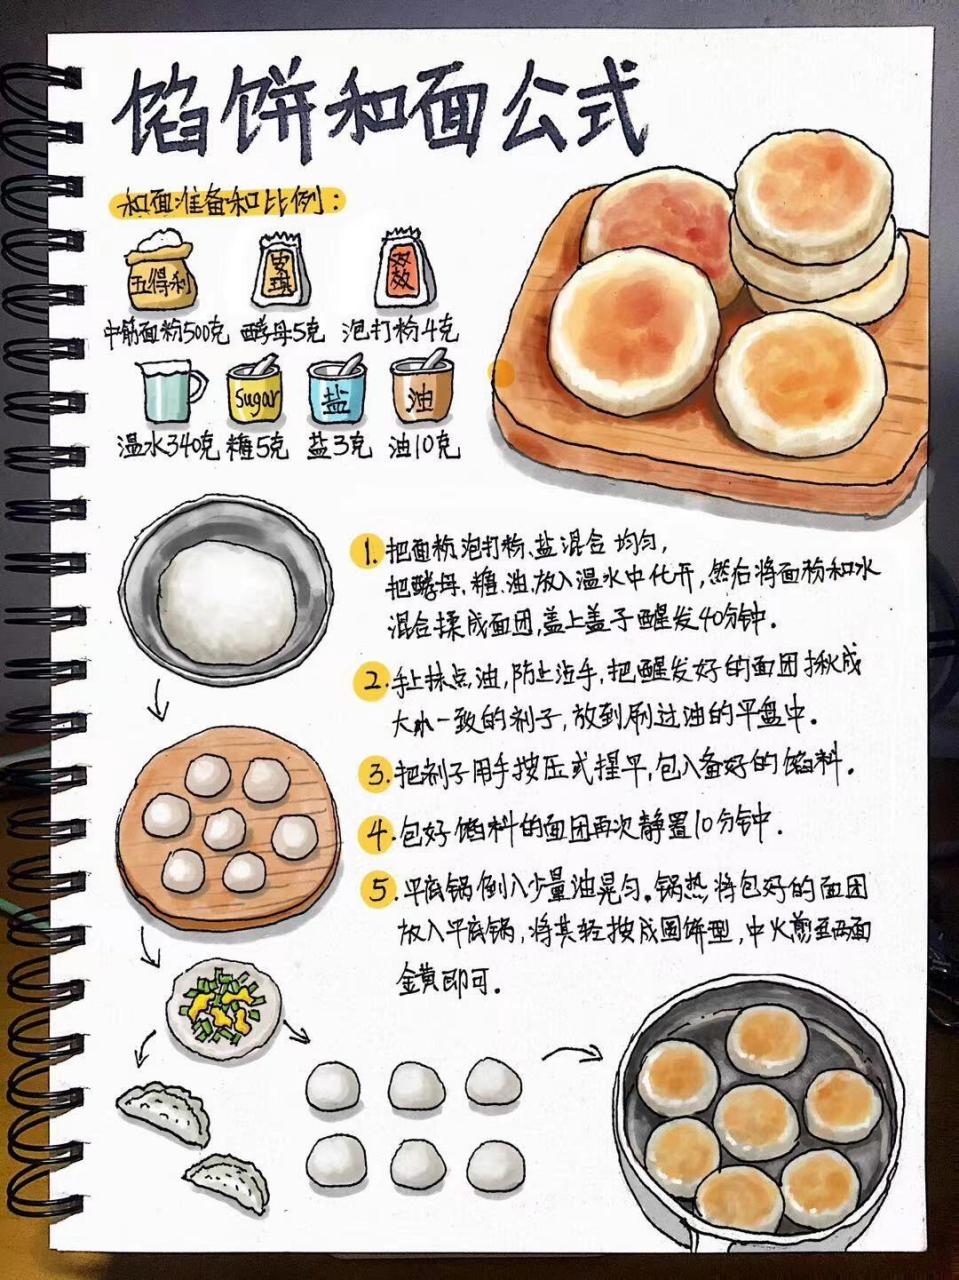 馅饼和面公式
和面准备和比例:
五得利
安琪
双效
中筋面粉500克 酵母5克 泡打粉4克
Sugar
盐
油
温水340克 糖5克 盐3克 油10克
1. 把面粉、泡打粉、盐混合均匀,
把酵母、糖、油放入温水中化开,然后将面粉和水
混合揉成面团,盖上盖子醒发40分钟.
2. 手上抹点油,防止沾手,把醒发好的面团揪成
大小一致的剂子,放到刷过油的平盘中.
3. 把剂子用手按压式捏平,包入备好的馅料.
4. 包好馅料的面团再次静置10分钟.
5. 平底锅倒入少量油晃匀.锅热将包好的面团
放入平底锅,将其轻按成圆饼型,中火煎至两面
金黄即可.